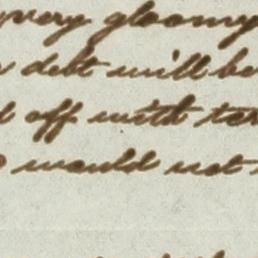 very gloomy
debt will be
off with
would not